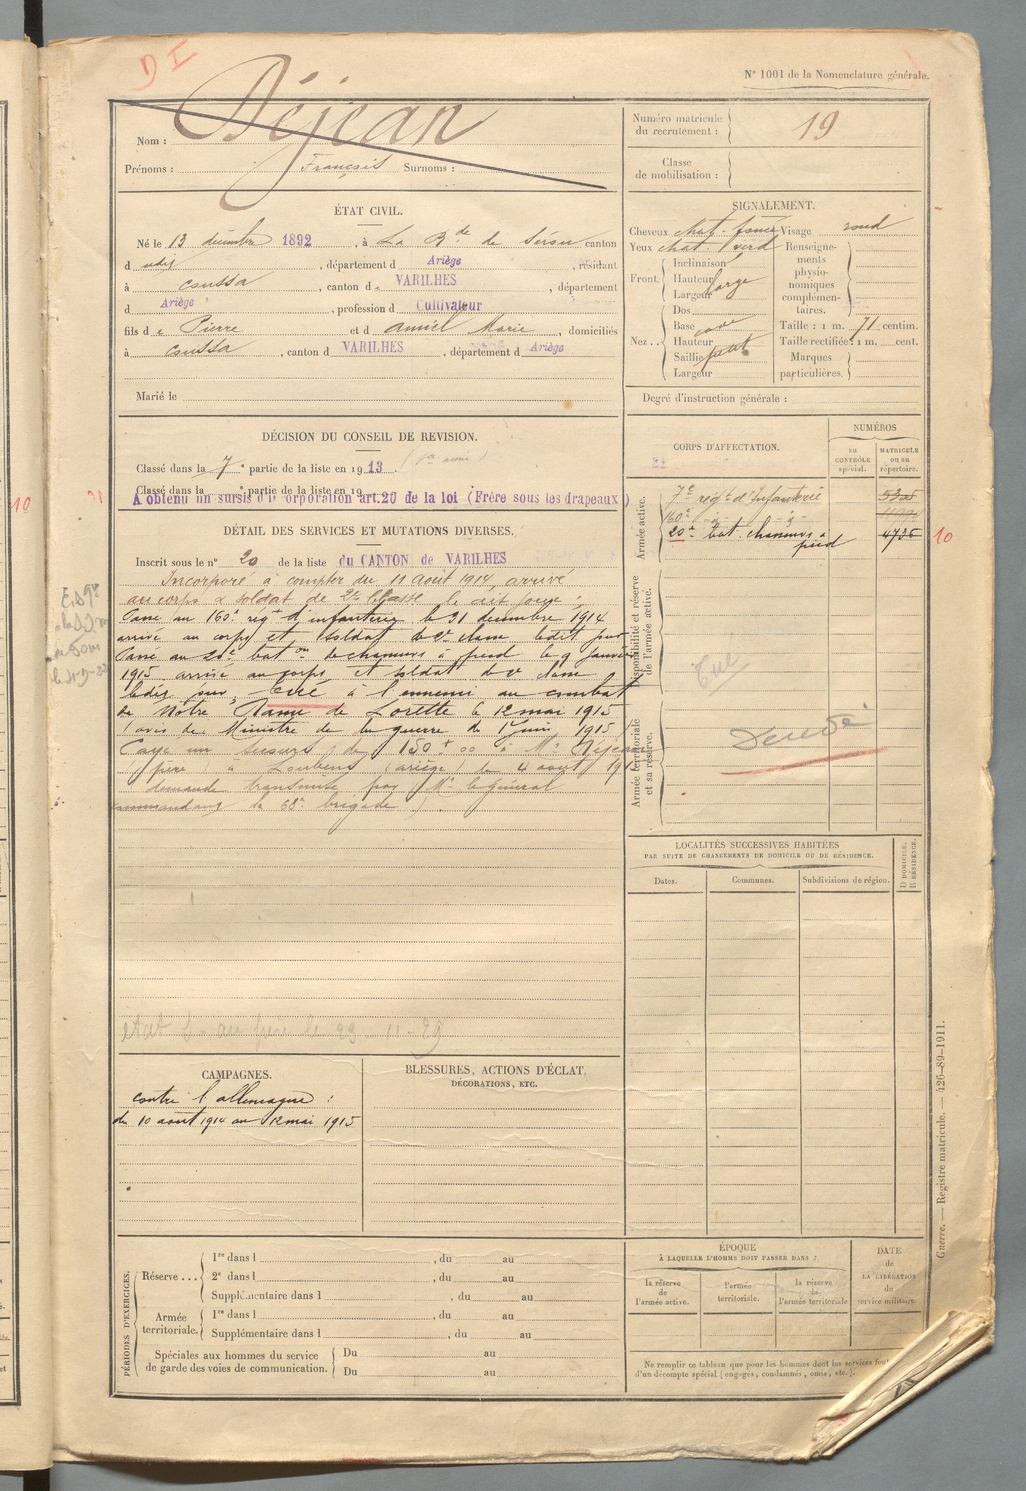 D I
N° 1001 de la Nomenclature générale.
Nom : Déjean
Prénoms : François Surnoms :
Numéro matricule du recrutement : 19
Classe de mobilisation :
ÉTAT CIVIL.
Né le 13 décembre 1892, à La B.de de Sérou canton
d udit, département d Ariège, résidant
à Coussa, canton de VARILHES, département
d Ariège, profession d Cultivateur
fils de Pierre et d Amiel Marie, domiciliés
à Coussa, canton d VARILHES, département d Ariège
Marié le
SIGNALEMENT.
Cheveux chat. foncé Visage rond
Yeux chat. verd Renseignements physionomiques complémentaires.
Front Inclinaison
Hauteur
Largeur large
Nez .. Dos
Base cave
Hauteur
Saillie petit
Largeur
Taille : 1 m. 71 centim.
Taille rectifiée : 1 m. cent.
Marques particulières.
Degré d'instruction générale :
DÉCISION DU CONSEIL DE REVISION.
Classé dans la 7e partie de la liste en 1913.
Classé dans la e partie de la liste en 19
A obtenu un sursis d'incorporation art. 20 de la loi (Frère sous les drapeaux)
DÉTAIL DES SERVICES ET MUTATIONS DIVERSES.
Inscrit sous le n° 20 de la liste du CANTON de VARILHES
Incorporé à compter du 11 août 1914, arrivé
au corps & soldat de 2e classe le dit jour.
Passé au 160e régt d'infanterie le 31 décembre 1914
arrivé au corps et soldat de 2e classe ledit jour
Passé au 20e baton de chasseurs à pied le 9 janvier
1915 arrivé au corps et soldat de 2e classe
ledit jour, Tué à l'ennemi au combat
de Notre Dame de Lorette le 12 mai 1915
(avis du Ministre de la guerre du 1er juin 1915)
Payé un secours de 150 f 00 à Mr Déjean
père à Loubens (ariège) le 4 août 191
demande transmise par Mr le général
commandant la 68e brigade).
CORPS D'AFFECTATION.
NUMÉROS
au CONTRÔLE spécial.
MATRICULE ou au répertoire.
Armée active.
7e régt d'Infanterie
160e
20e bat. chasseurs à pied 4736
10
10
Disponibilité et réserve de l'armée active.
Tué
Armée territoriale et sa réserve.
Décédé
LOCALITÉS SUCCESSIVES HABITÉES
PAR SUITE DE CHANGEMENTS DE DOMICILE OU DE RÉSIDENCE.
Dates.
Communes.
Subdivisions de région.
D. DOMICILE. R. RÉSIDENCE.
CAMPAGNES.
contre l'allemagne :
du 10 août 1914 au 12 mai 1915
BLESSURES, ACTIONS D'ÉCLAT,
DÉCORATIONS, ETC.
PÉRIODES D'EXERCICES.
Réserve ... 1re dans l , du au
2e dans l , du au
Supplémentaire dans l , du au
Armée territoriale. 1re dans l , du au
Supplémentaire dans l , du au
Spéciales aux hommes du service de garde des voies de communication. Du au
Du au
ÉPOQUE
À LAQUELLE L'HOMME DOIT PASSER DANS :
la réserve de l'armée active.
l'armée territoriale.
la réserve de l'armée territoriale
DATE de LA LIBÉRATION du service militaire.
Ne remplir ce tableau que pour les hommes dont les services font
d'un décompte spécial (engagés, condamnés, omis, etc.).
Guerre. — Registre matricule. — 426-89-1911.